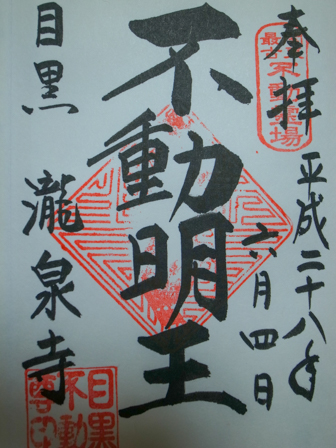 奉拝
平成二十八年
六月四日
不動明王
目黒 瀧泉寺
不動霊場
目黒
不動